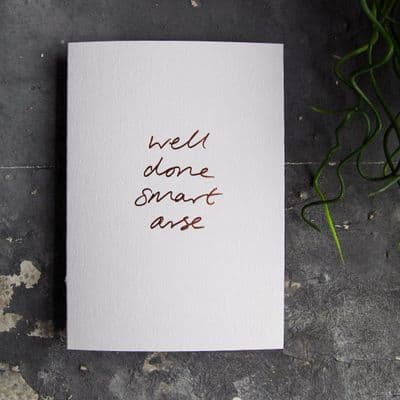 well
done
smart
arse